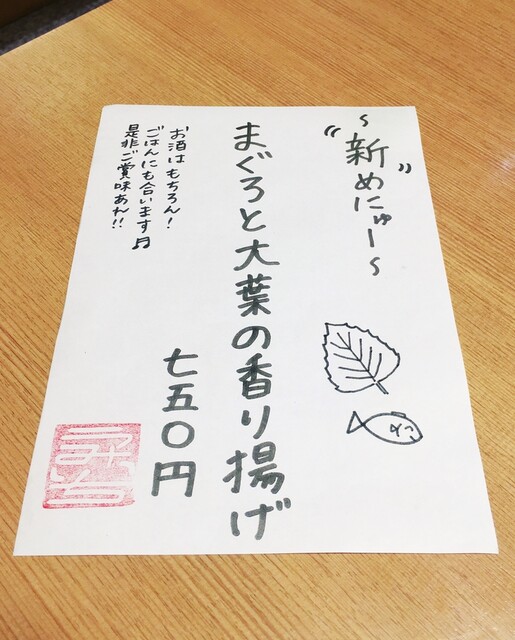 ～"新"めにゅー～
まぐろと大葉の香り揚げ
七五〇円
お酒はもちろん！
ごはんにも合います♬
是非ご賞味あれ!!